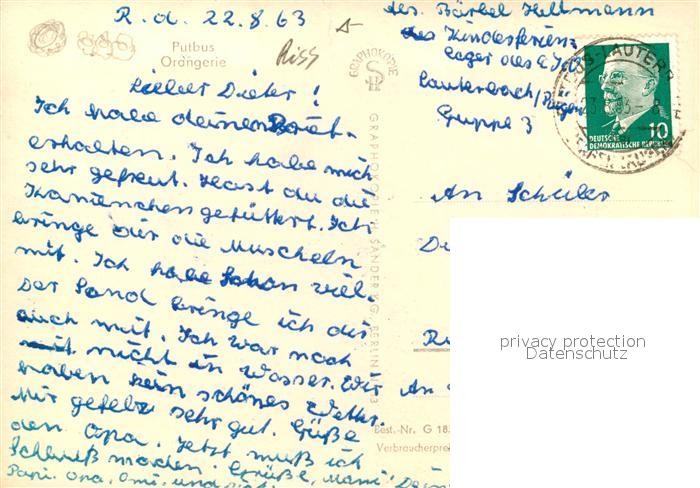 R. d. 22.8.63
Riss
Putbus
Orangerie
Lieber Dieter!
Ich habe deinen Brief
erhalten. Ich habe mich
sehr gefreut. Hast du die
Kaninchen gefüttert. Ich
bringe dir die Muscheln
mit. Ich habe schon viel.
der Sand bringe ich dir
auch mit. Ich war noch
nicht in Wasser. Wir
haben kein schönes Wetter.
Mir gefelt sehr gut. Grüße
den Opa. Jetzt muß ich
Schluß machen. Grüße, Mami
Papi. Opa, Omi, und
GRAPHOKOPIE
GRAPHOKOPIE H. SANDER KG. BERLIN
Best.-Nr. G 18
Verbraucherpre
Abs. Bärbel Heltmann
des Kinderferien-
lager des
Lauterbach/Rügen
Gruppe 3
DEUTSCHE
DEMOKRATISCHE REPUBLIK
10
An Schüler
An
privacy protection
Datenschutz